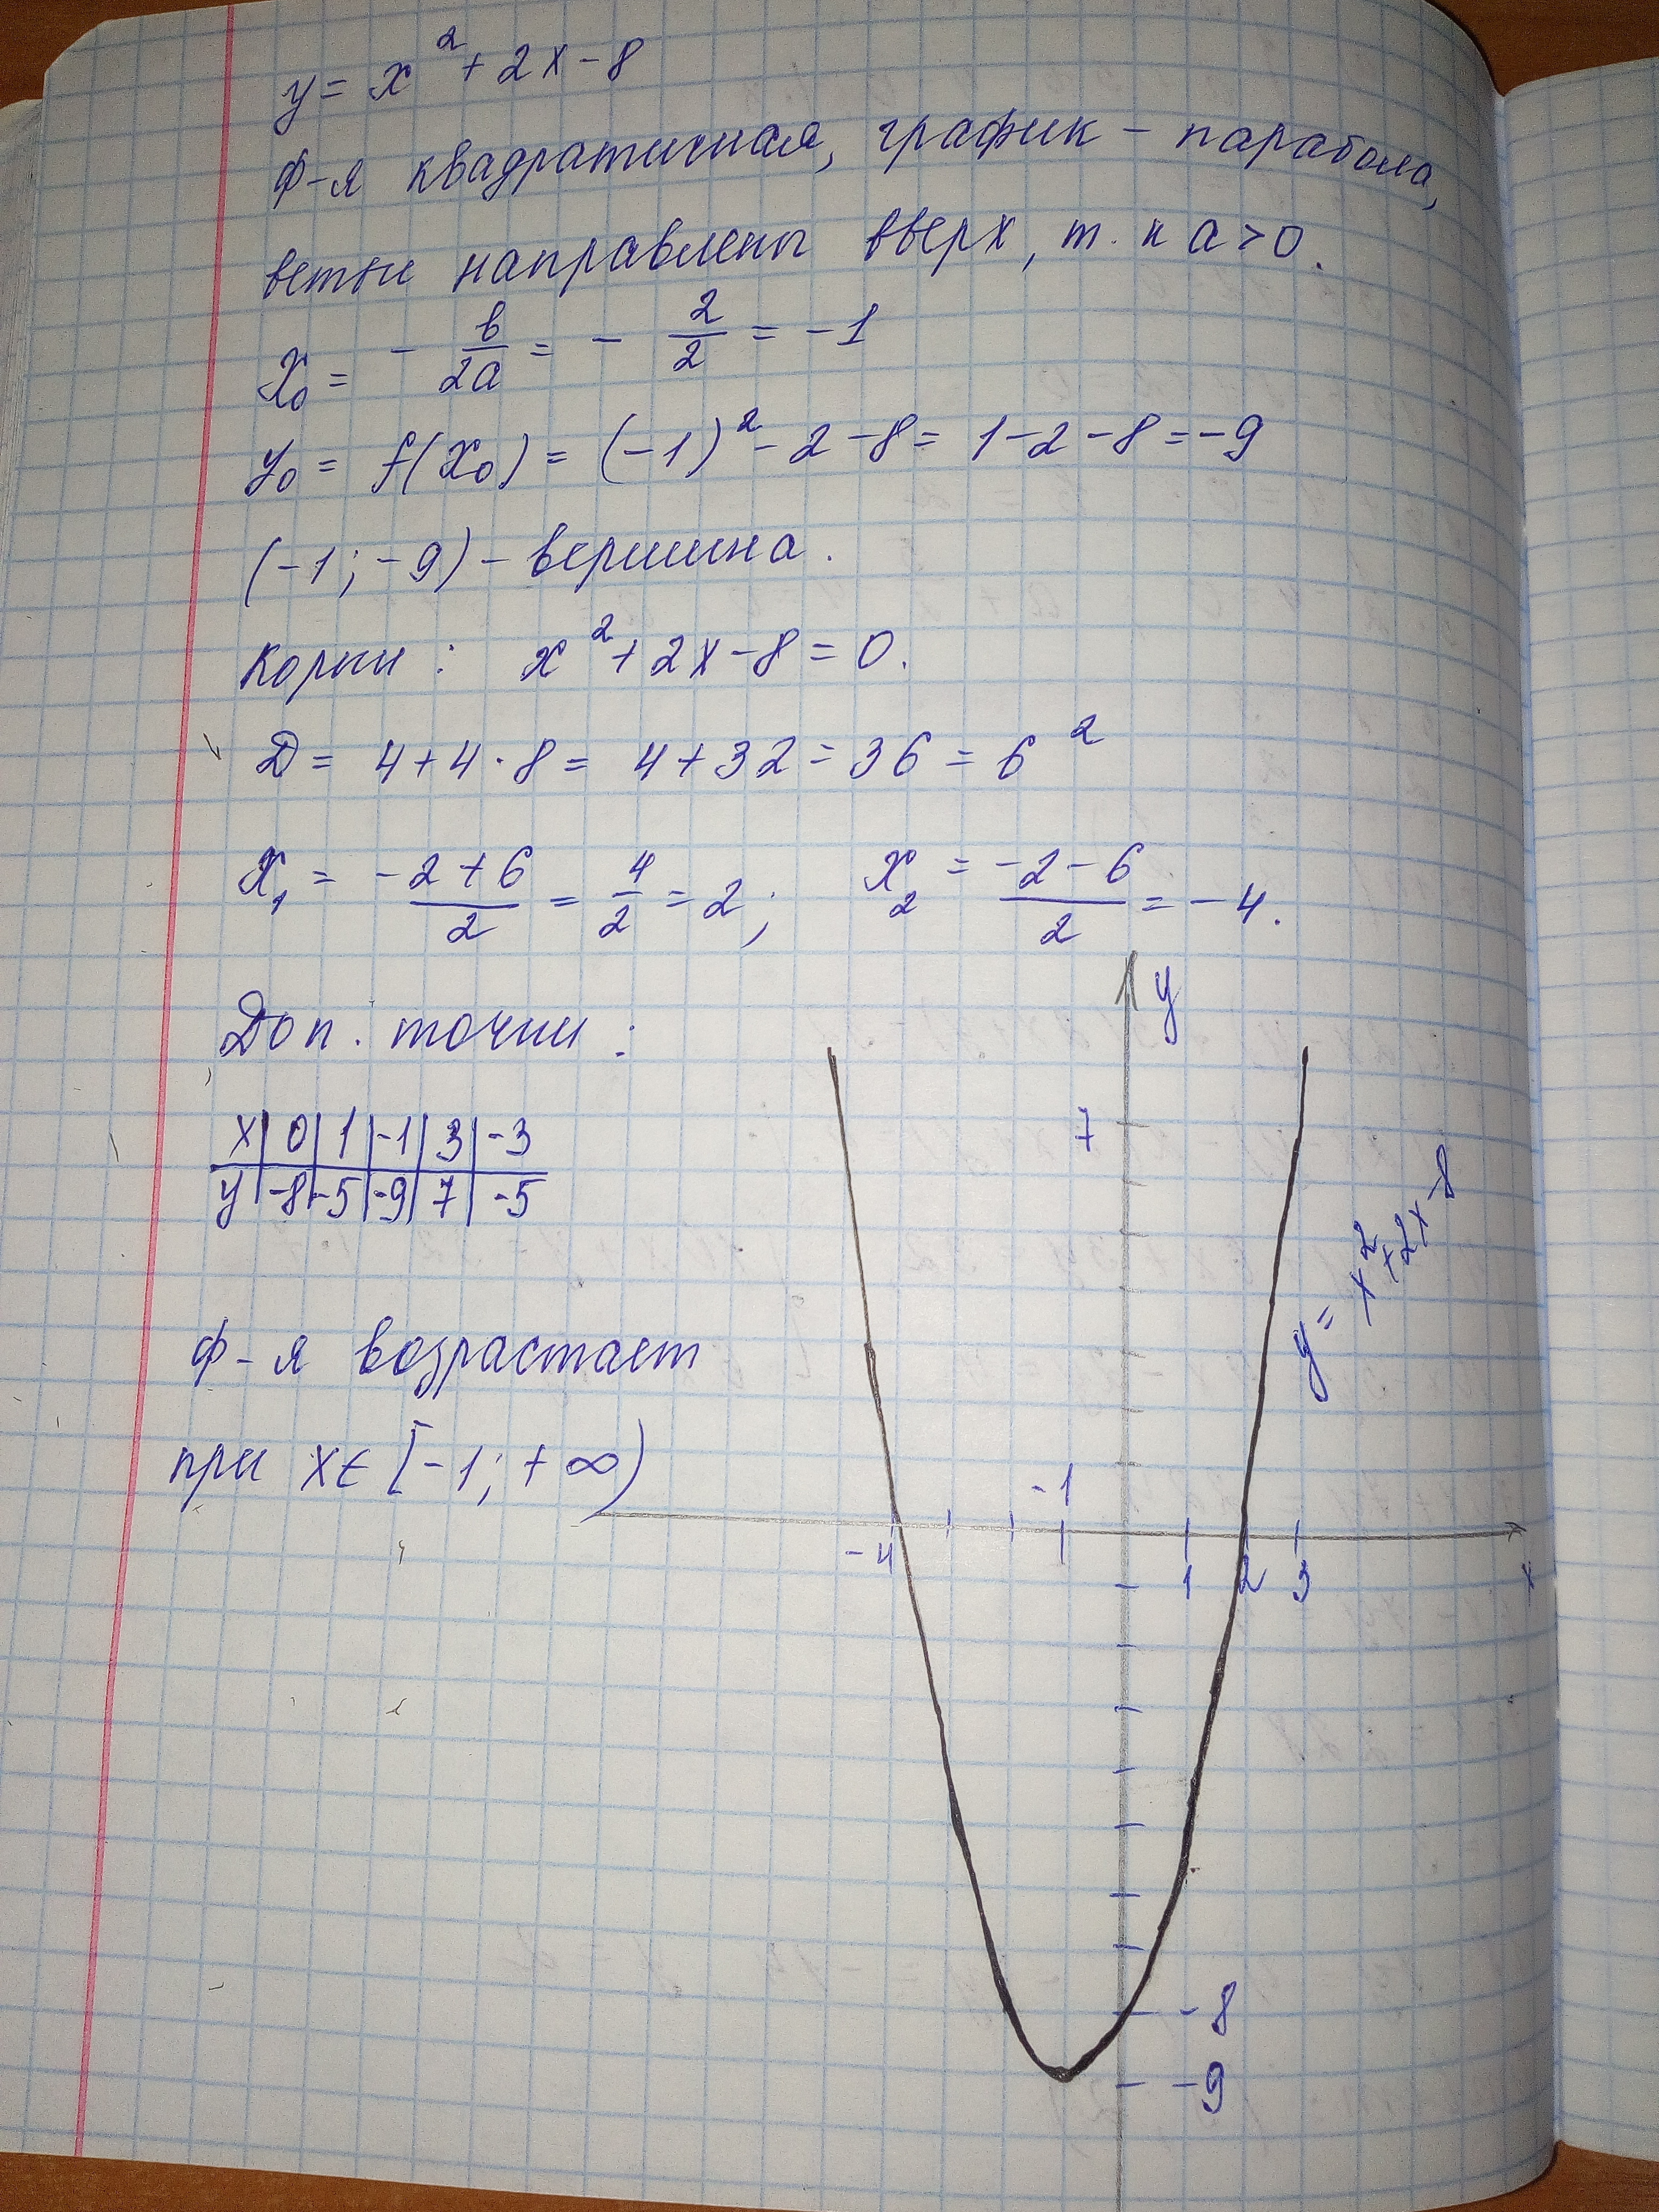 y = x² + 2x - 8
Ф-я квадратичная, график - парабола,
ветви направлены вверх, т. к a > 0.
x₀ = - b/2a = - 2/2 = -1
y₀ = f(x₀) = (-1)² - 2 - 8 = 1 - 2 - 8 = -9
(-1; -9) - вершина.
Корни: x² + 2x - 8 = 0.
D = 4 + 4 · 8 = 4 + 32 = 36 = 6²
x₁ = (-2 + 6)/2 = 4/2 = 2; x₂ = (-2 - 6)/2 = -4.
Доп. точки:
x | 0 | 1 | -1 | 3 | -3
y | -8 | -5 | -9 | 7 | -5
Ф-я возрастает
при x ∈ [-1; +∞)
y
7
y = x² + 2x - 8
-1
-4 1 2 3 x
-8
-9